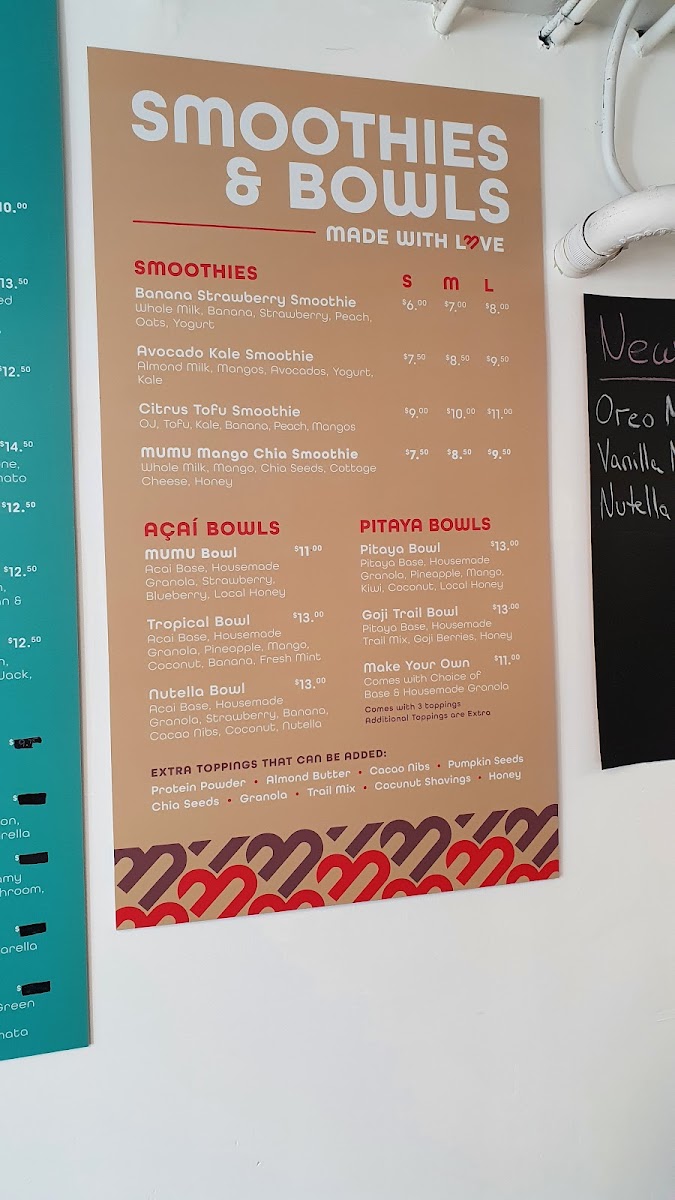 10.00
13.50
ed
12.50
$14.50
ne,
nato
$12.50
$12.50
n,
n &
$12.50
n,
Jack,
$
$
on,
rella
$
amy
hroom,
$
arella
$
Green
nata
SMOOTHIES
& BOWLS
MADE WITH LOVE
SMOOTHIES S M L
Banana Strawberry Smoothie $6.00 $7.00 $8.00
Whole Milk, Banana, Strawberry, Peach,
Oats, Yogurt
Avocado Kale Smoothie $7.50 $8.50 $9.50
Almond Milk, Mangos, Avocados, Yogurt,
Kale
Citrus Tofu Smoothie $9.00 $10.00 $11.00
OJ, Tofu, Kale, Banana, Peach, Mangos
MUMU Mango Chia Smoothie $7.50 $8.50 $9.50
Whole Milk, Mango, Chia Seeds, Cottage
Cheese, Honey
AÇAÍ BOWLS
MUMU Bowl $11.00
Acai Base, Housemade
Granola, Strawberry,
Blueberry, Local Honey
Tropical Bowl $13.00
Acai Base, Housemade
Granola, Pineapple, Mango,
Coconut, Banana, Fresh Mint
Nutella Bowl $13.00
Acai Base, Housemade
Granola, Strawberry, Banana,
Cacao Nibs, Coconut, Nutella
PITAYA BOWLS
Pitaya Bowl $13.00
Pitaya Base, Housemade
Granola, Pineapple, Mango,
Kiwi, Coconut, Local Honey
Goji Trail Bowl $13.00
Pitaya Base, Housemade
Trail Mix, Goji Berries, Honey
Make Your Own $11.00
Comes with Choice of
Base & Housemade Granola
Comes with 3 toppings
Additional Toppings are Extra
EXTRA TOPPINGS THAT CAN BE ADDED:
Protein Powder • Almond Butter • Cacao Nibs • Pumpkin Seeds
Chia Seeds • Granola • Trail Mix • Cocunut Shavings • Honey
New
Oreo M
Vanilla
Nutella